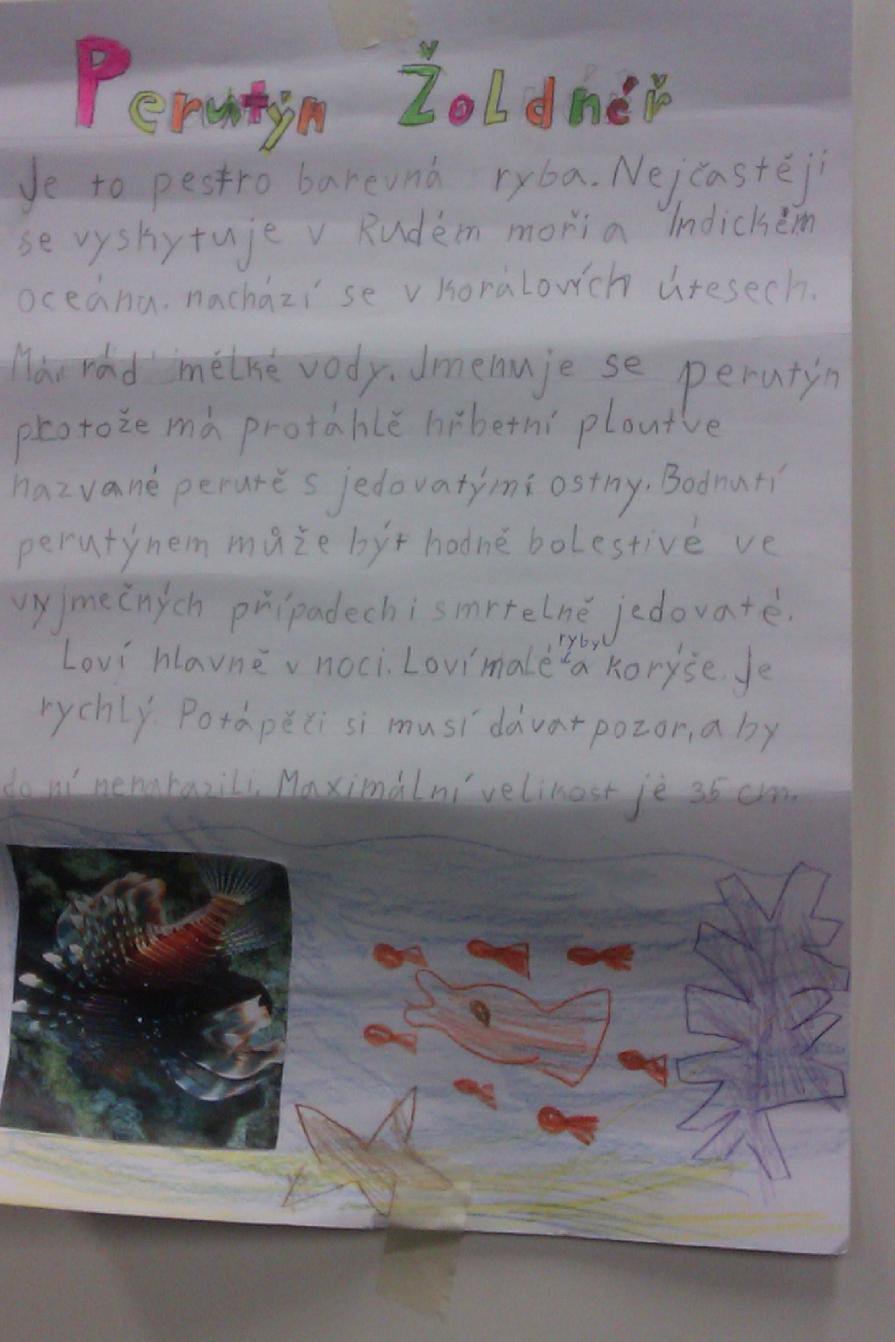 Perutýn Žoldnéř
Je to pestro barevná ryba. Nejčastěji
se vyskytuje v Rudém moři a Indickém
oceánu. nachází se v korálových útesech.
Má rád mělké vody. Jmenuje se perutýn
protože má protáhlě hřbetní ploutve
nazvané perutě s jedovatými ostny. Bodnutí
perutýnem může být hodně bolestivé ve
vyjmečných případech i smrtelně jedovaté.
Loví hlavně v noci. Loví malé ryby a korýše. Je
rychlý. Potápěči si musí dávat pozor, a by
do ní nenarazili. Maximální velikost je 35 cm.